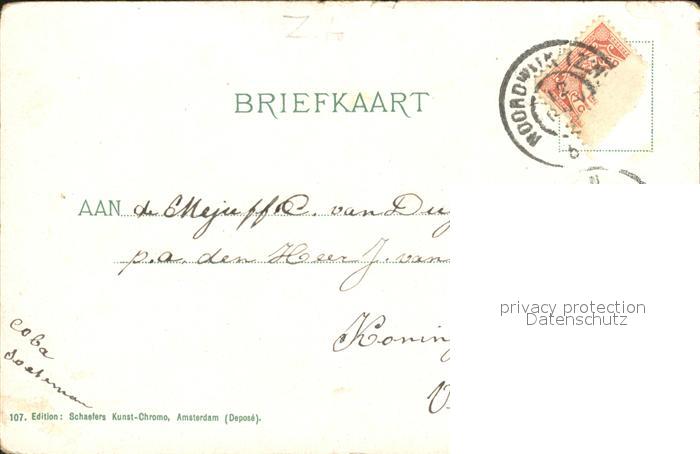 Z.H.
BRIEFKAART
NOORDWIJK (Z.H.)
AAN de Mejuff C. van Duy
p.a. den Heer J. van
Koning
V
privacy protection
Datenschutz
Coba
107. Edition: Schaefers Kunst-Chromo, Amsterdam (Deposé).